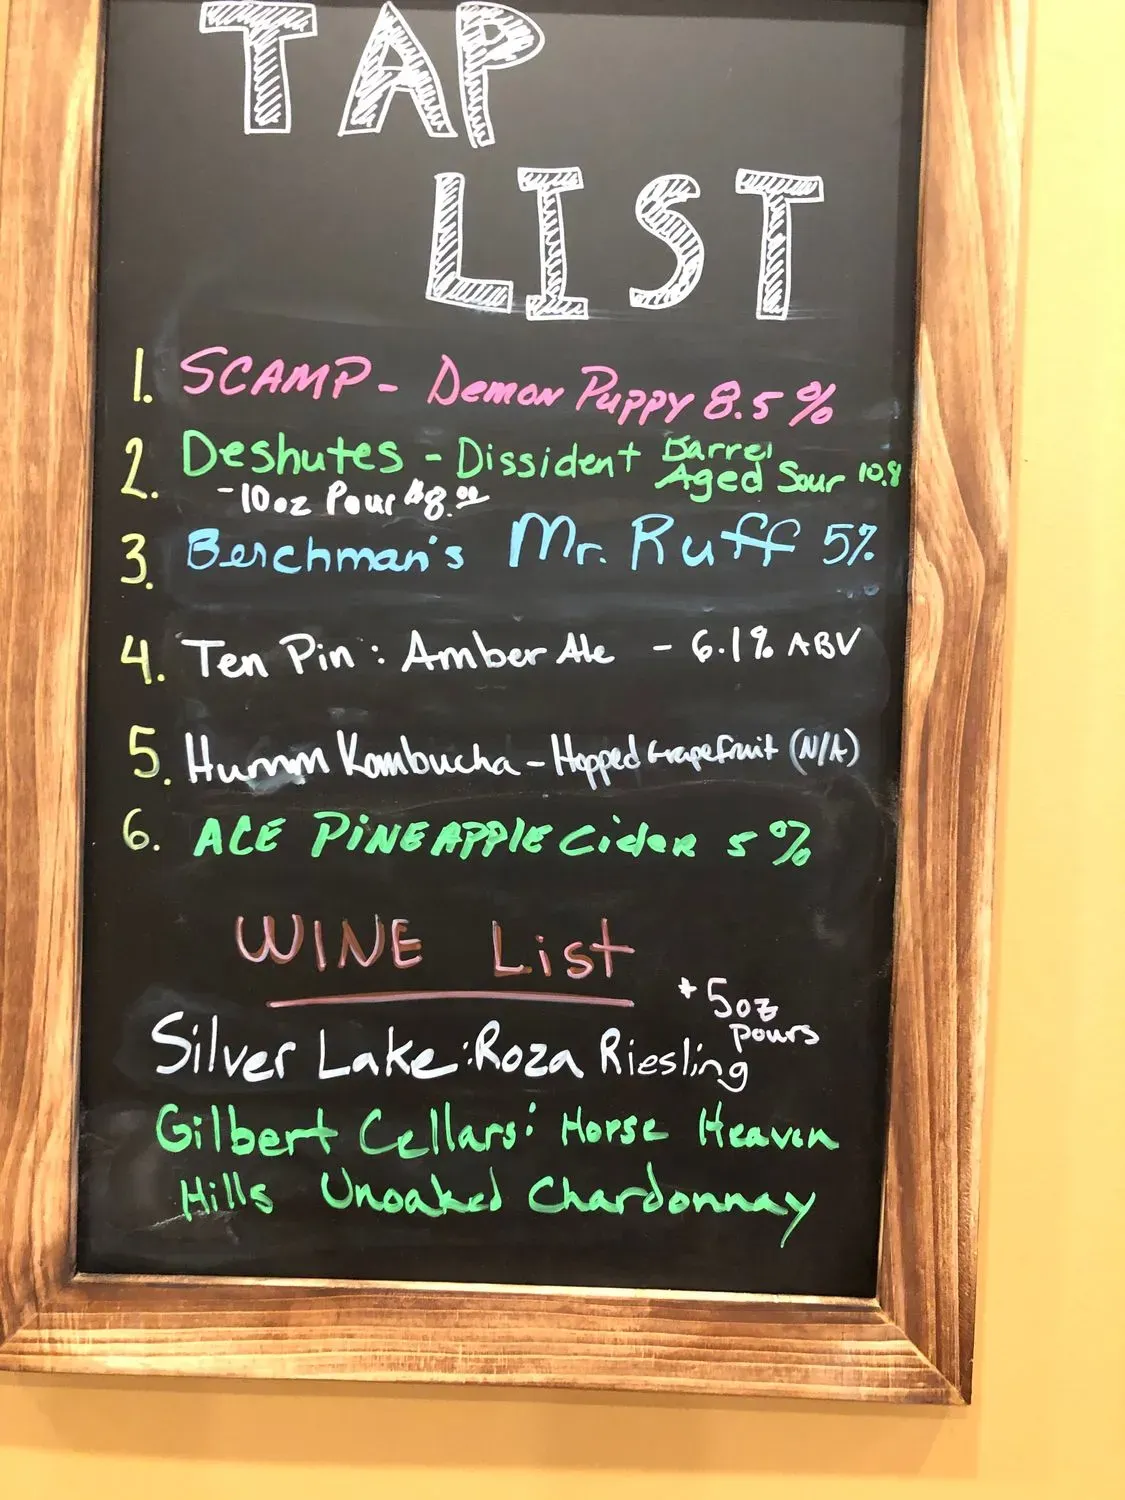 TAP
LIST
1. SCAMP - Demon Puppy 8.5%
2. Deshutes - Dissident Barrel Aged Sour 10.8
-10oz Pour $8.00
3. Berchman's Mr. Ruff 5%
4. Ten Pin: Amber Ale - 6.1% ABV
5. Humm Kombucha - Hopped Grapefruit (N/A)
6. ACE PINEAPPLE Cider 5%
WINE List
*5oz
pours
Silver Lake: Roza Riesling
Gilbert Cellars: Horse Heaven
Hills Unoaked Chardonnay